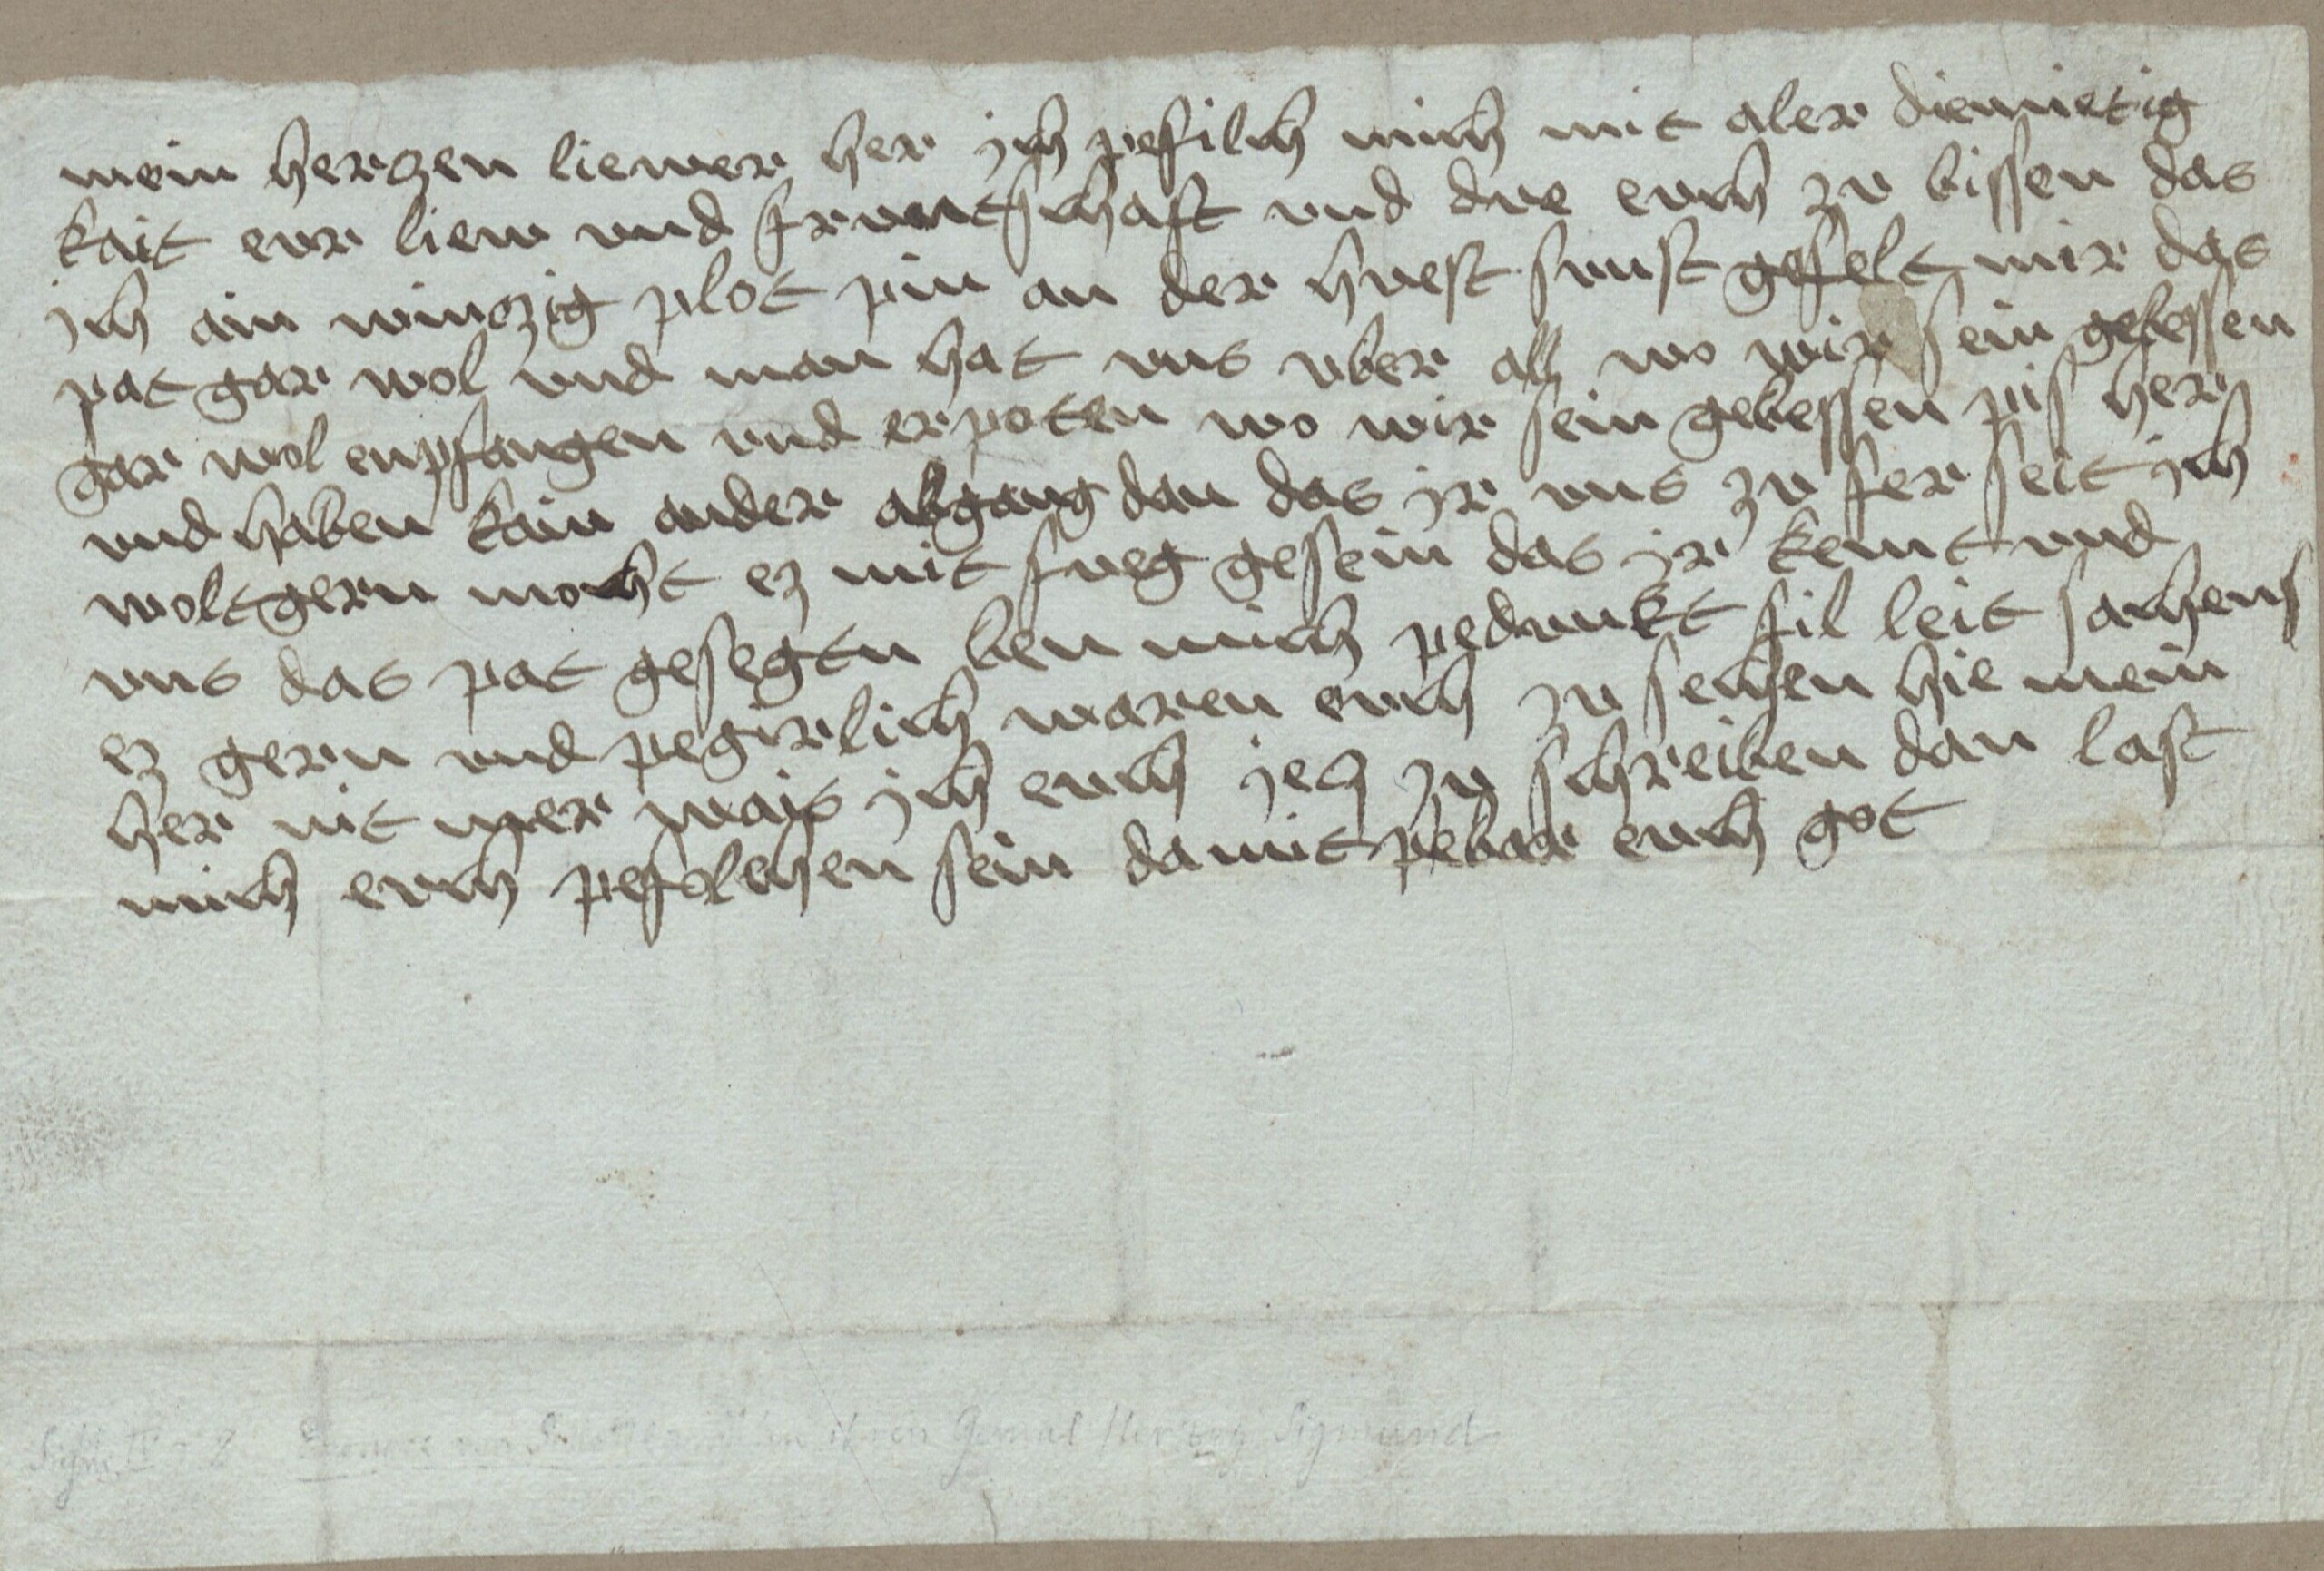 mein herczen liewer her jch pefilch mich mit aler diemietig
kait eur liew vnd fruntschaft vnd due euch zu bissen das
jch ain winczig plot pin an der huest sunst gefelt mir das
pat gar wol vnd man hat vns vber all wo wir sein gebessen
gar wol enpfangen vnd erpoten wo wir sein gebessen pis her
vnd haben kain ander abgang dan das jr vns zu fer seit jch
wolt gern mocht ez mit fueg gesein das jr kemt vnd
vns das pat gesegten ben mich pedunkt fil leit sachens
ez gern vnd pegirlich waren euch zu sechen hie mein
her nit mer wais jch euch jecz zu schreiben dan last
mich euch pefolchen sein da mit pebar euch got
ihren Gemal Herzog Sigmund